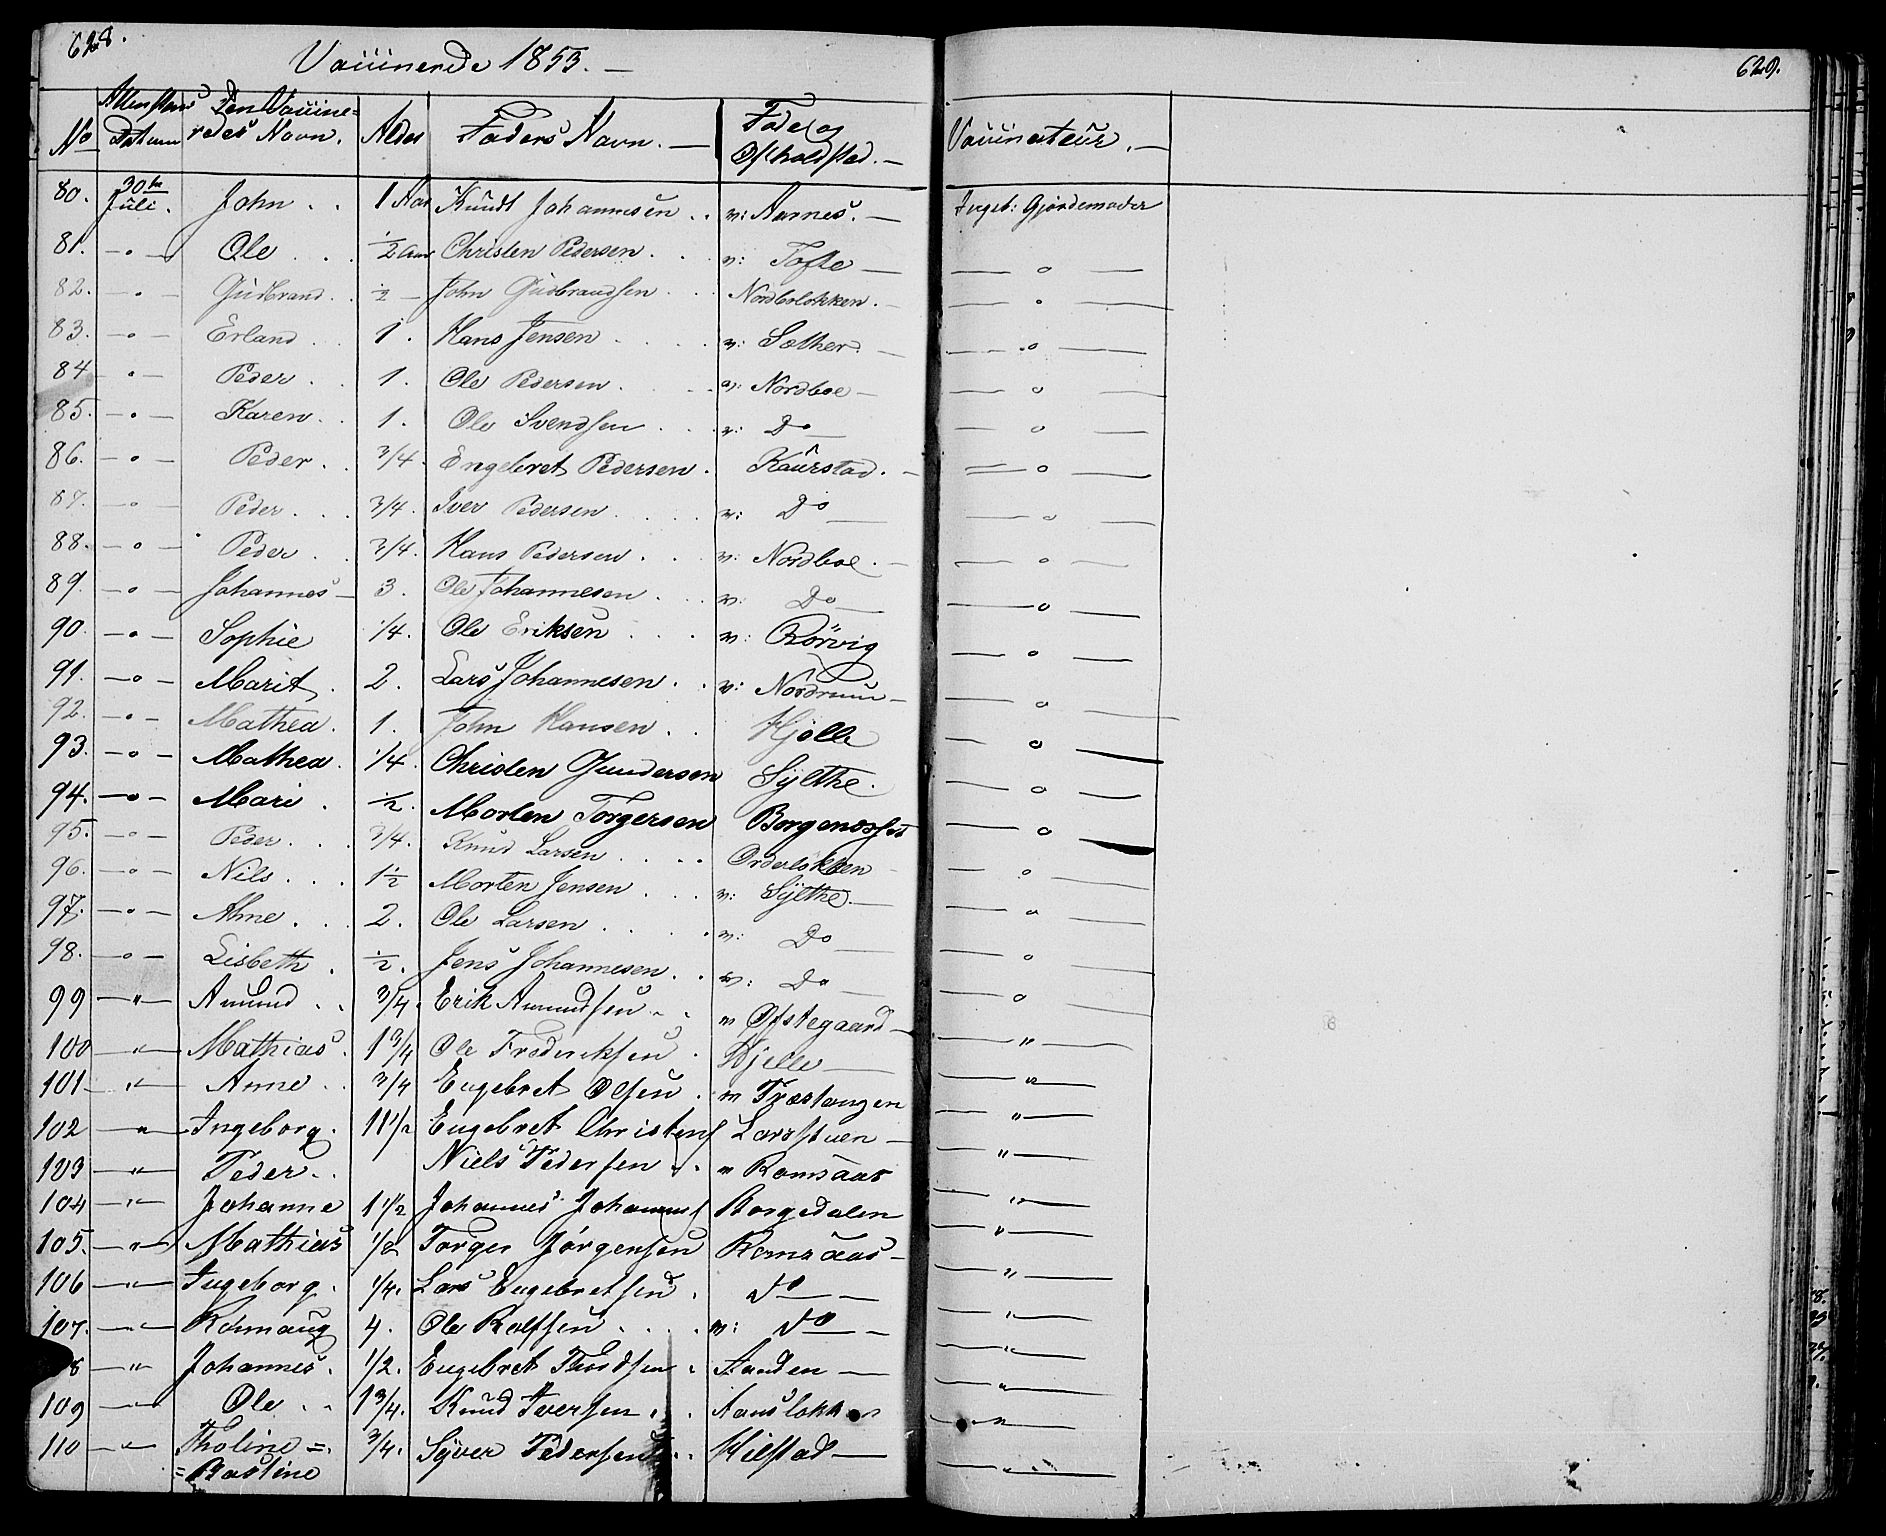 628.
Vaccinerede 1853. —
629.
No | Attestens Datum | Den Vaccineredes Navn. | Alder | Faders Navn. — | Føde og Opholdsted. — | Vaccinateur. —
80. 30te Juli. John . . 1 Aar Knudt Johannesen . . v: Aarnes. — Ingeb: Gjordemoder
81. — " — Ole . . . 1/2 Aar Christen Pedersen . . . v: Tofte — — " —
82. — " — Gudbrand . . 1/2 — John Gudbrandsen . . . Nordbolökken. — — " —
83. — " — Erland . . 1 . Hans Jensen . . . . v: Sæther. — — " —
84 — " — Peder . . 1. Ole Pedersen . . . v: Nordboe — — " —
85. — " — Karen . . 1. Ole Svendsen . . . v: Do — — " —
86. — " — Peder . . 3/4. Engebret Pedersen . Kaurstad. — — " —
87. — " — Peder . . . 3/4. Iver Pedersen . . . . v: Do — — " —
88. — " — Peder . . 3/4. Hans Pedersen . . . v: Nordboe. — — " —
89. — " — Johannes — 3. Ole Johannesen . . . v: Do — — " —
90. — " — Sophie 1/4. Ole Eriksen . . . . v: Rörvig — " —
91. — " — Marit . 2. Lars Johannesen . . v: Nordrum — — " —
92. — " — Mathea . 1. John Hansen . . Hjelle — " —
93. — " — Mathea . 1/4 Christen Gundersen Sÿlthe. — " —
94. — " — Mari . 1/2. Morten Torgersen — " —
95. — " — Peder . . . 3/4. Knud Larsen . . . . — " —
96. — " — Nils . . . 1 1/2 Morten Jensen . . . v: Sÿlthe. — — " —
97. — " — Anne . . . 2. Ole Larsen . . . . . v: Do — — " —
98. — " — Lisbeth . 1/2. Jens Johannesen . . v: Do — — " —
99 — " — Amund . . 3/4. Erik Amundsen . . " Øfstegaard — — " —
100 — " — Mathias . 1 3/4 Ole Frederiksen . Hjelle — — " —
101 — " — Anne . . 3/4 Engebret Olsen . " Træstangen — " —
102 — " — Ingeborg . 1 1/2 Engebret Christens Larsstuen — — " —
103 — " — Peder . . Niels Pedersen . . " Romsaas — " —
104 — " — Johanne 1 1/2 Johannes Johannes Borgedalen — " —
105. — " — Mathias 1/2 Torger Jörgensen Romsaas — — " —
106 — " — Ingeborg . 1/4. Lars Engebretsen . Do — — — " —
107. — " — Rönnaug 4. Ole Rolfsen . . . . v: Do — — — " —
8 — " — Johannes . 1/2. Engebret Thordsen . Aanden — — " —
109 — " — Ole . . 1 3/4. Knud Iversen . . — " —
110 — " — Tholine = 3/4. Syver Pedersen . . Kilstad — — " —
= Rastine